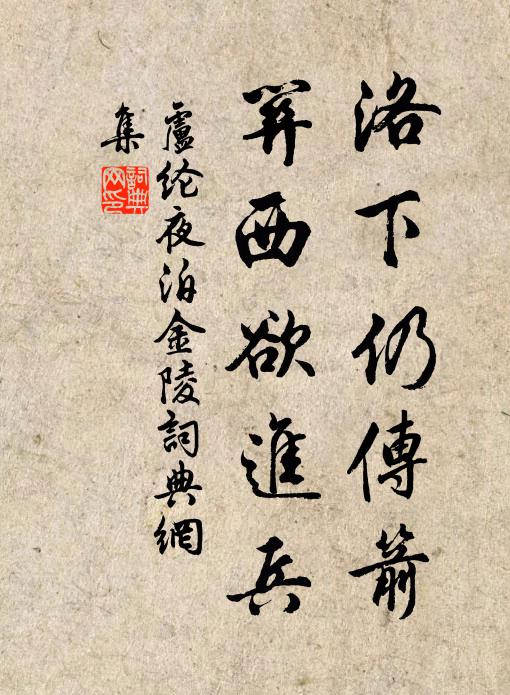 洛下仍傳箭
關西欲進兵
盧纶夜泊金陵詞典網
集
詞典網印